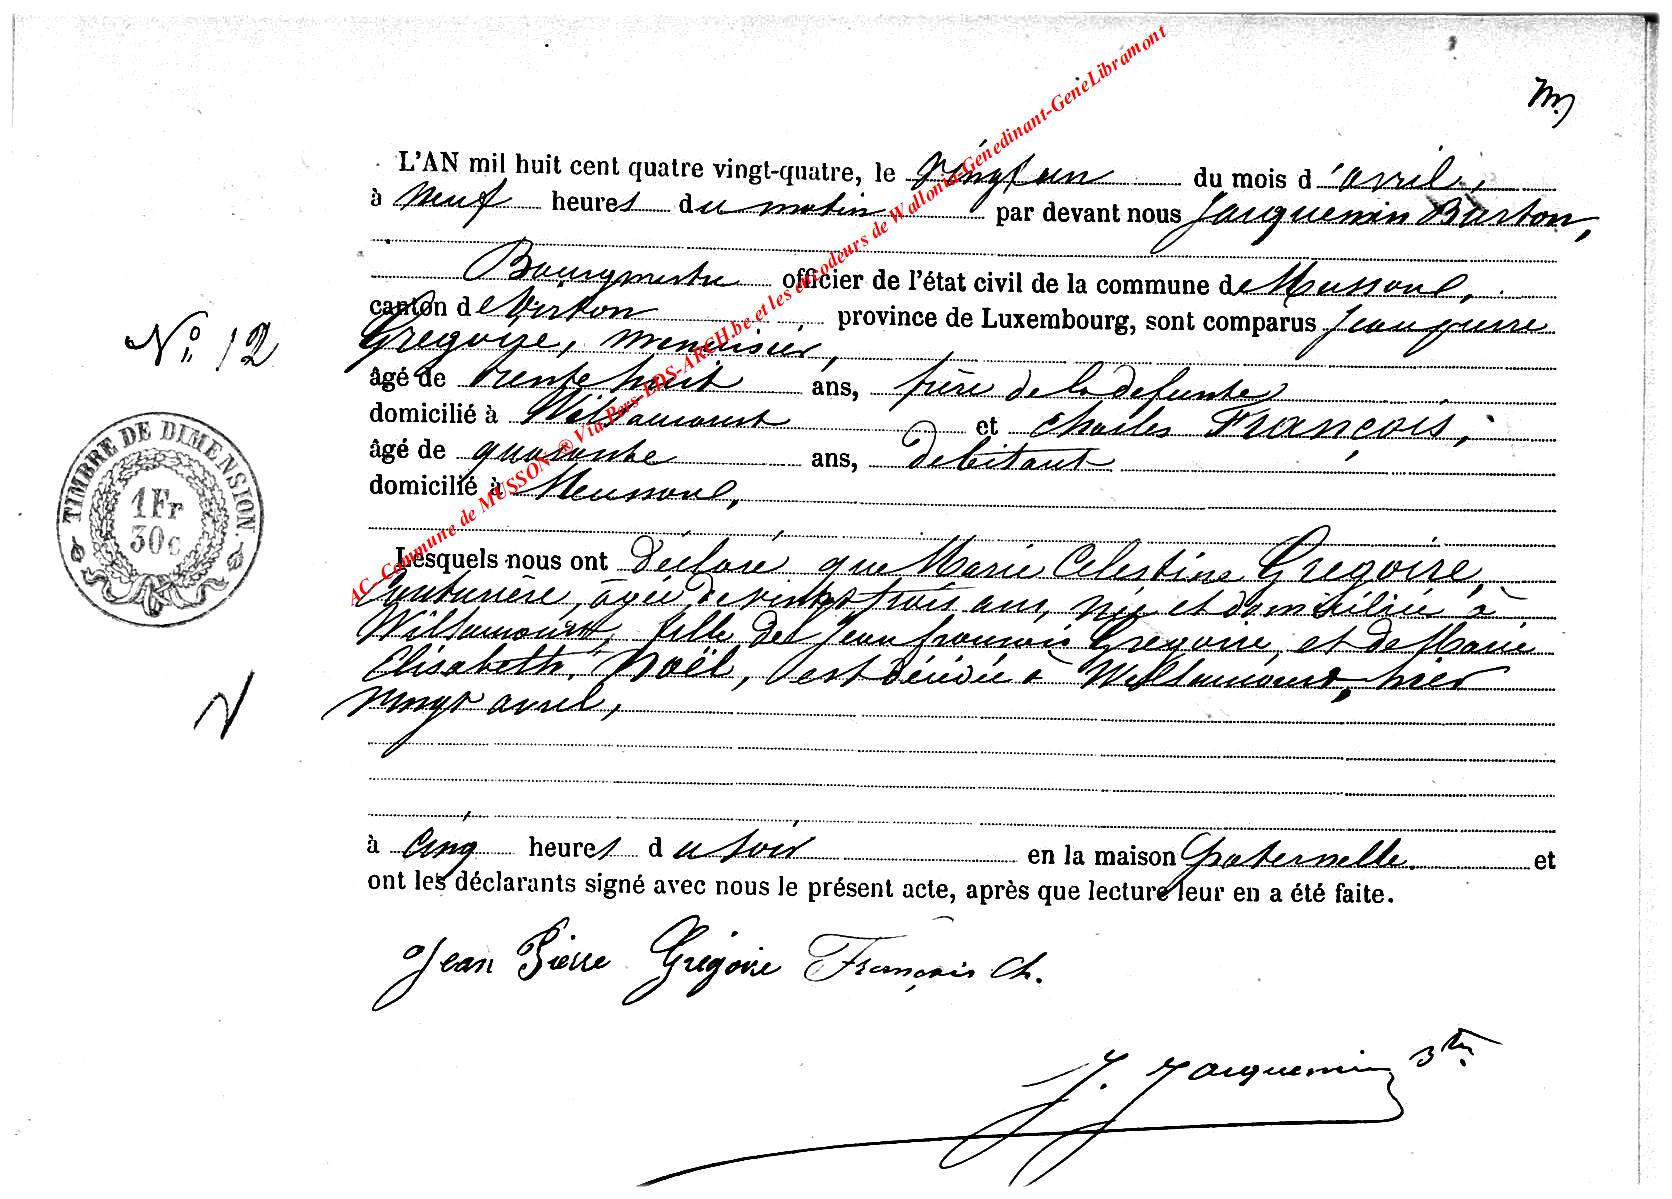 m
L'AN mil huit cent quatre vingt-quatre, le vingt un du mois d'avril,
à neuf heures du matin par devant nous Jacquemin Barton,
Bourgmestre officier de l'état civil de la commune de Musson,
canton de Virton province de Luxembourg, sont comparus Jean pierre
Grégoire, menuisier,
N° 12
âgé de trente huit ans, frère de la defunte
domicilié à Willancourt et Charles François,
âgé de quarante ans, débitant
domicilié à Musson,
TIMBRE DE DIMENSION.
1 Fr
30 c
Lesquels nous ont déclaré que Marie Celestine Gregoire,
Couturière, âgée de vingt trois ans, née et domiciliée à
Willancourt, fille de Jean françois Gregoire, et de Marie
Elisabeth Noël, est décédée à Willancourt, hier
vingt avril,
à cinq heures du soir en la maison paternelle. et
ont les déclarants signé avec nous le présent acte, après que lecture leur en a été faite.
Jean Pierre Grégoire François Ch.
J. Jacquemin Btn
AC- Commune de MUSSON ® Via Pers-EDS-ARCH.be et les encodeurs de Wallonia-Genedinant-GeneLibramont